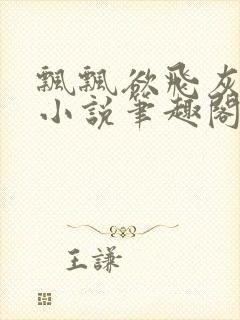 飄飄欲飛灰
小說筆趣閣
王謙